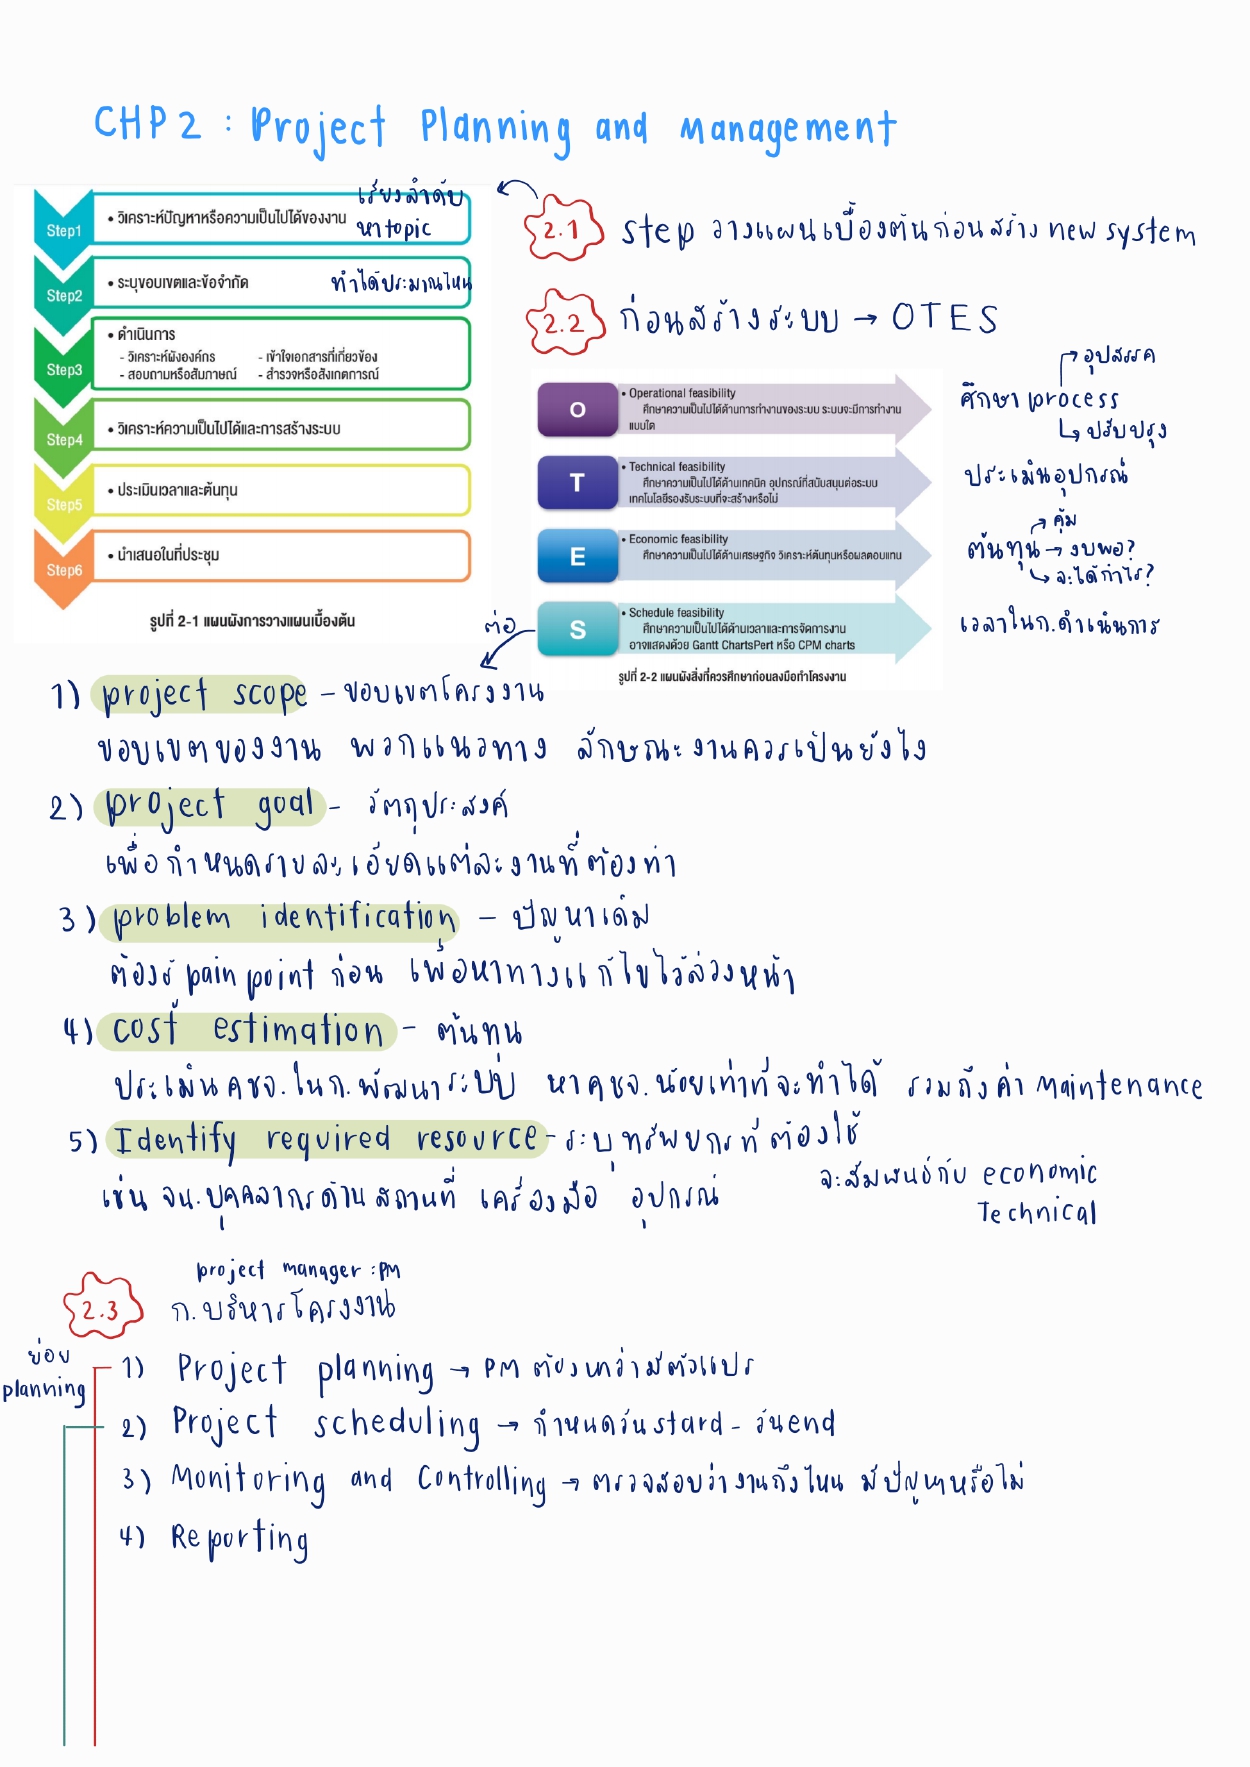 CHP 2 : Project Planning and Management
Step1
• วิเคราะห์ปัญหาหรือความเป็นไปได้ของงาน
เรียงลำดับ
หา topic
Step2
• ระบุขอบเขตและข้อจำกัด
ทำได้ประมาณไหน
Step3
• ดำเนินการ
- วิเคราะห์ผังองค์กร - เข้าใจเอกสารที่เกี่ยวข้อง
- สอบถามหรือสัมภาษณ์ - สำรวจหรือสังเกตการณ์
Step4
• วิเคราะห์ความเป็นไปได้และการสร้างระบบ
Step5
• ประเมินเวลาและต้นทุน
Step6
• นำเสนอในที่ประชุม
รูปที่ 2-1 แผนผังการวางแผนเบื้องต้น
2.1 step วางแผนเบื้องต้นก่อนสร้าง new system
2.2 ก่อนสร้างระบบ → OTES
O
• Operational feasibility
ศึกษาความเป็นไปได้ด้านการทำงานของระบบ ระบบจะมีการทำงาน
แบบใด
→ อุปสรรค
ศึกษา process
↳ ปรับปรุง
T
• Technical feasibility
ศึกษาความเป็นไปได้ด้านเทคนิค อุปกรณ์ที่สนับสนุนต่อระบบ
เทคโนโลยีรองรับระบบที่จะสร้างหรือไม่
ประเมินอุปกรณ์
E
• Economic feasibility
ศึกษาความเป็นไปได้ด้านเศรษฐกิจ วิเคราะห์ต้นทุนหรือผลตอบแทน
→ คุ้ม
ต้นทุน → งบพอ?
↳ จะได้กำไร?
S
• Schedule feasibility
ศึกษาความเป็นไปได้ด้านเวลาและการจัดการงาน
อาจแสดงด้วย Gantt ChartsPert หรือ CPM charts
เวลาในก.ดำเนินการ
รูปที่ 2-2 แผนผังสิ่งที่ควรศึกษาก่อนลงมือทำโครงงาน
ต่อ
1) project scope - ขอบเขตโครงงาน
ขอบเขตของงาน พวกแนวทาง ลักษณะงานควรเป็นยังไง
2) project goal - วัตถุประสงค์
เพื่อกำหนดรายละเอียดแต่ละงานที่ต้องทำ
3) problem identification - ปัญหาเดิม
ต้องรู้ pain point ก่อน เพื่อหาทางแก้ไขไว้ล่วงหน้า
4) cost estimation - ต้นทุน
ประเมินคชจ.ในก.พัฒนาระบบ หาคชจ.น้อยเท่าที่จะทำได้ รวมถึงค่า Maintenance
5) Identify required resource - ระบุทรัพยกรที่ต้องใช้
เช่น จน.บุคคลากรด้านสถานที่ เครื่องมือ อุปกรณ์
จะสัมพันธ์กับ economic
Technical
project manager : PM
2.3 ก.บริหารโครงงาน
ย่อย
planning
1) Project planning → PM ต้องหาว่ามีตัวแปร
2) Project scheduling → กำหนดวัน stard - วัน end
3) Monitoring and Controlling → ตรวจสอบว่างานถึงไหน มีปัญหาหรือไม่
4) Reporting